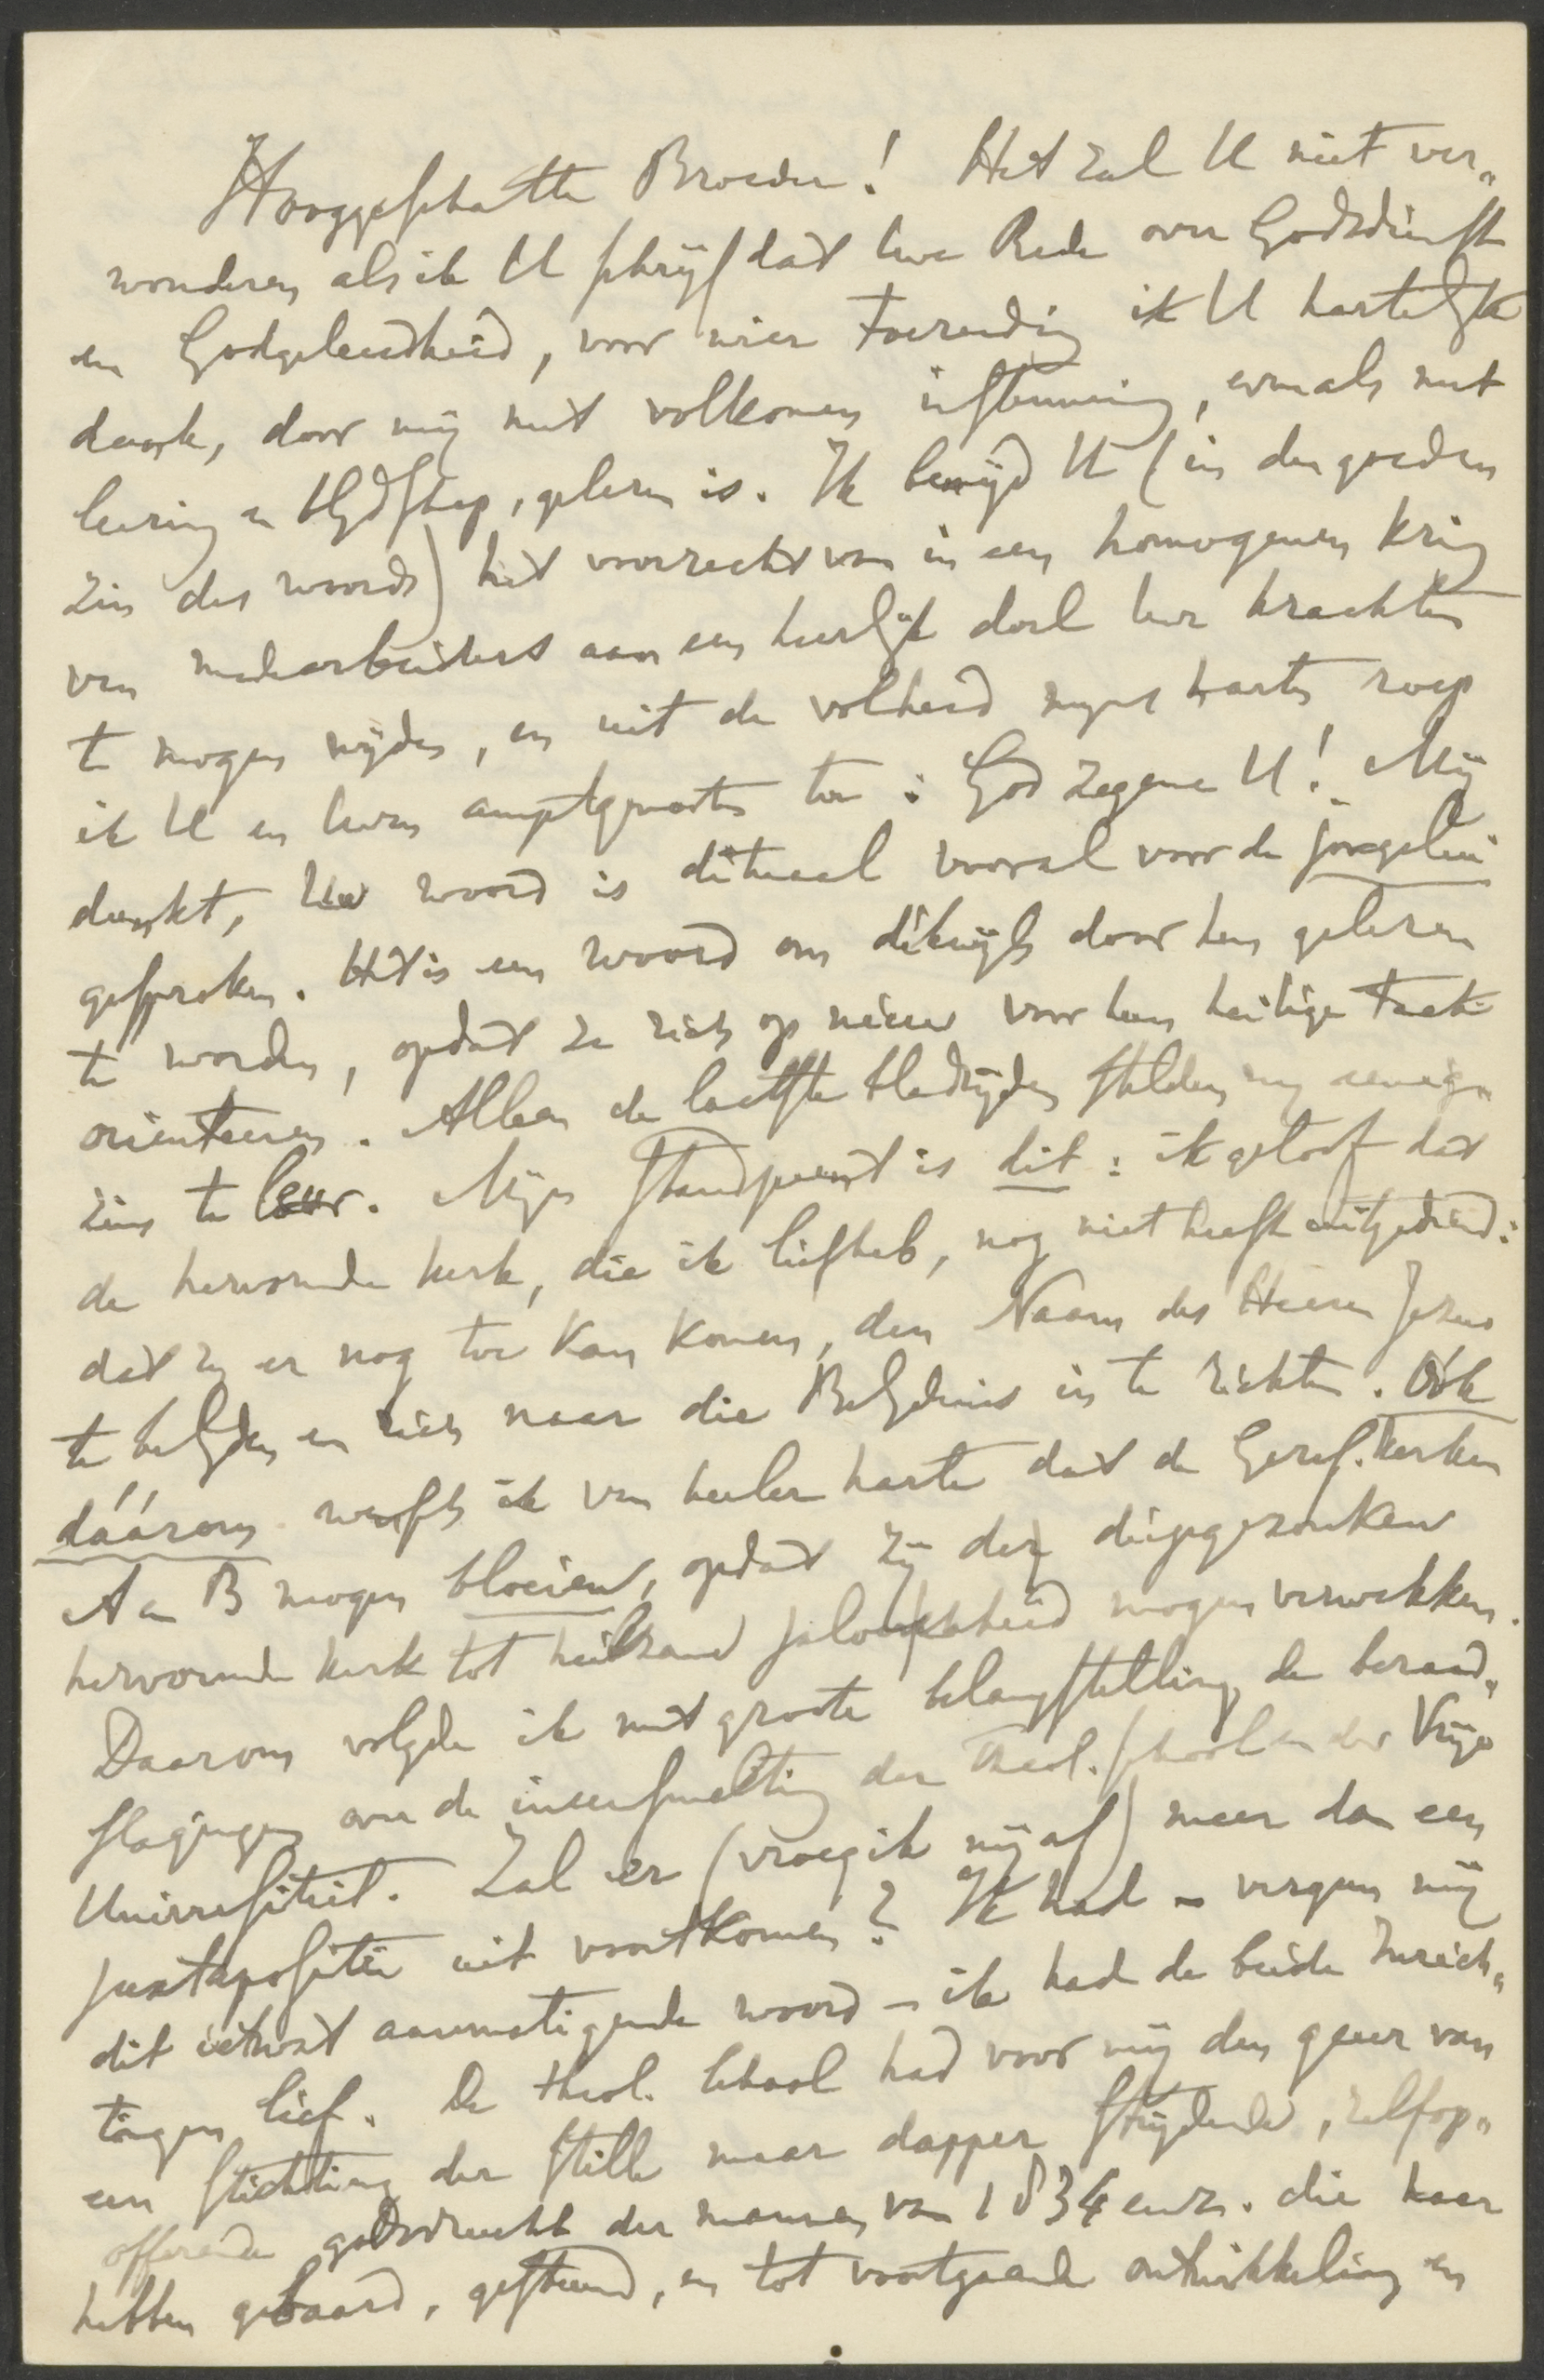 Hooggeschatte Broeder! Het zal U niet ver„
wonderen als ik U schrijf dat Uwe Rede over Godsdienst
en Godgeleerdheid, voor wier toezending ik U hartelijk
dank, door mij met volkomen instemming, evenals met
leering en blijdschap, gelezen is. Ik benijd U (in den goeden
zin des woords) het voorrecht van in een homogenen kring
van medearbeiders aan een heerlijk doel Uwe krachten
te mogen wijden, en uit de volheid mijns harten roep
ik U en Uwen amptgenooten toe: God zegene U! Mij
dunkt, Uw woord is ditmaal vooral voor de jongelui
gesproken. Het is een woord om dikwijls door hen gelezen
te worden, opdat ze zich op nieuw voor hun heilige taak
oriënteeren. Alleen de laatste bladzijden stelden mij eenigs„
zins te leur. Mijn standpunt is dit: ik geloof dat
de hervormde kerk, die ik liefheb, nog niet heeft uitgediend:
dat zij er nog toe kan komen, den Naam des Heeren Jezus
te belijden en zich naar die Belijdenis in te richten. Óók
dáárom wensch ik van heeler harte dat de Geref. Kerken
A en B mogen bloeien, opdat zij der diepgezonken
hervormde kerk tot heilzame jaloerschheid mogen verwekken.
Daarom volgde ik met groote belangstelling de beraad„
slagingen over de ineensmelting der Theol. school en der Vrije
Universiteit. Zal er (vroeg ik mij af) meer dan een
juxtapositie uit voortkomen? Ik had – vergun mij
dit ietwat aanmatigende woord – ik had de beide Inrich„
tingen lief. De theol. School had voor mij den geur van
een stichting der stille maar dapper strijdende, zelfop„
offerende godsvrucht der mannen van 1834 enz. die haar
hebben gebaard, gesteund, en tot voortgaande ontwikkeling en